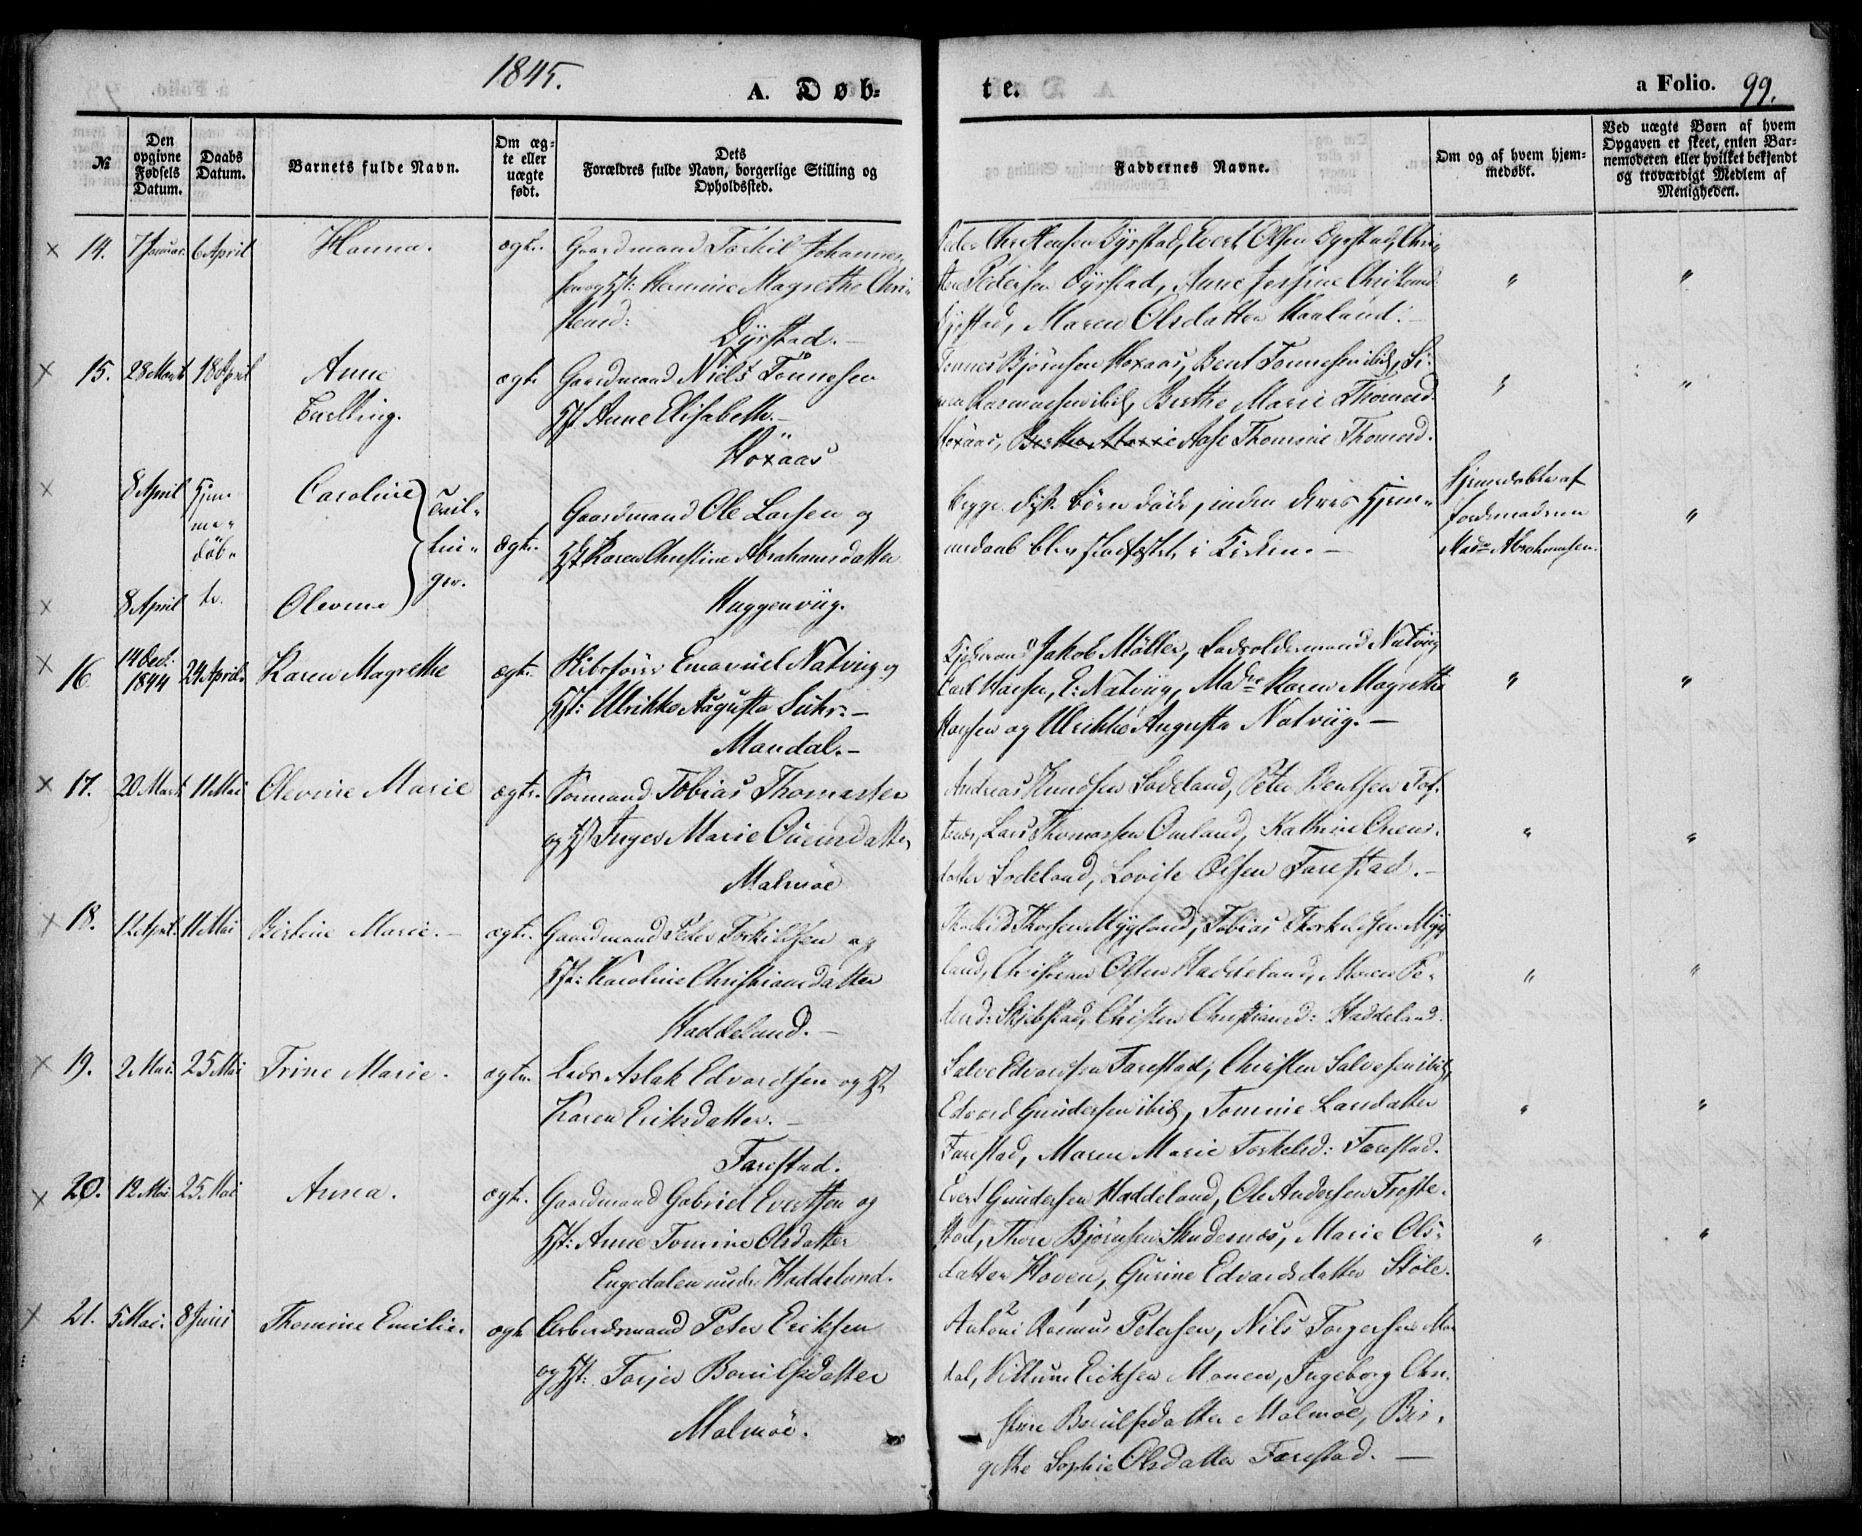 1845.
A. Døb-
te.
a Folio. 99.
№
Den opgivne Fødsels Datum.
Daabs Datum.
Barnets fulde Navn.
Om æg- te eller uægte født.
Dets Forældres fulde Navn, borgerlige Stilling og Opholdssted.
Faddernes Navne.
Om og af hvem hjem- medøbt.
Ved uægte Børn af hvem Opgaven er skeet, enten Bar- nemoderen eller hvilket bekjendt og troværdigt Medlem af Menigheden.
14. 7 Januar 6 April Hanna. ægte. Gaardmand Torkil Johanne-
sen og Hst: Hermine Magrethe Chri-
stensd:
Dyrstad.
Peder Christensen Dyrstad, Evert Olsen Dyrstad, Chri-
sten Pedersen Dyrstad, Anne Jossine Christensd:
Dyrstad, Maren Olsdatter Kaaland. " "
15. 28 Marts 18 April Anne ægte Gaardmand Niels Tönnesen
Tvilling. Hst Anne Elisabeth.
Höxaas
Tönnes Bjørnsen Höxaas, Bent Tönnesen ibid, Si-
Rasmussen ibid, Berthe Marie Thomesd.
Höxaas, Berthe Marie Aase Thomine Thomesd. " "
8 April Hjem- me- döb- te. Caroline Tvil- lin- ger. ægte. Gaardmand Ole Larsen og
Hst Karen Christine Abrahamsdatter
8 April Olevine
Haggenviig.
Begge disse börn döde, inden deres Hjem-
medaab blev stadfæstet i Kirken.
Hjemdöbte af
Jordemoderen
Madm Abrahamsen. "
16 14 Dec: 1844 24 April Karen Magrethe ægte. Skibsförer Emanuel Natviig og
Hst: Ulrikke Augusta Suhr.
Mandal.
Kjöbmand Jakob Möller, Lodsoldermand Natviig
Carl Hansen, E: Natviig, Madme Karen Magrethe
Hansen og Ulrikke Augusta Natviig. " "
17. 20 Marts 11 Mai Olevine Marie ægte. Sömand Tobias Thomassen
og Hst Inger Marie Ouensdatter
Malmöe
Andreas Knudsen Lodeland, Peter Bentsen Tof-
tenæs, Lars Thomassen Omland, Kathrine Ouens-
datter Lodeland, Lovise Olsen Farestad. " "
18. 12 April. 11 Mai Bertine Marie. ægte. Gaardmand Peter Torkildsen og
Hst: Karoline Christiansdatter
Haddeland.
Thorkild Thorsen Mÿgland, Tobias Thorkildsen Mÿg-
land, Christian Olsen Haddeland, Maren Pe-
dersd: Skjebstad, Christen Christiansd: Haddeland. " "
19. 2 Mai. 25 Mai Trine Marie. ægte. Lods Aslak Edvardsen og Hst.
Karen Eriksdatter.
Farestad.
Salve Edvardsen Farestad, Christen Salvesen ibid,
Edvard Gundersen ibid, Tomine Larsdatter
Farestad, Maren Marie Torkelsd: Farestad. " "
20. 12 Mai 25 Mai Anna. ægte. Gaardmand Gabriel Evertsen og
Hst: Anne Tomine Olsdatter
Engedalen under Haddeland.
Evert Gundersen Haddeland, Ole Andersen Froste-
stad, Thore Bjørnsen Skudesnæs, Marie Ols-
datter Hoven, Gurine Edvardsdatter Støle. " "
21. 5 Mai. 8 Juni Thomine Emilie. ægte Arbeidsmand Peter Eriksen
og Hst: Torjer Bonilsdatter
Malmöe.
Antoni Rasmus Petersen, Nils Torgersen Man-
dal, Villum Eriksen Monen, Ingeborg Chri-
stine Bonilsdatter Malmöe, Bir-
gethe Sophie Olsdatter Farestad.